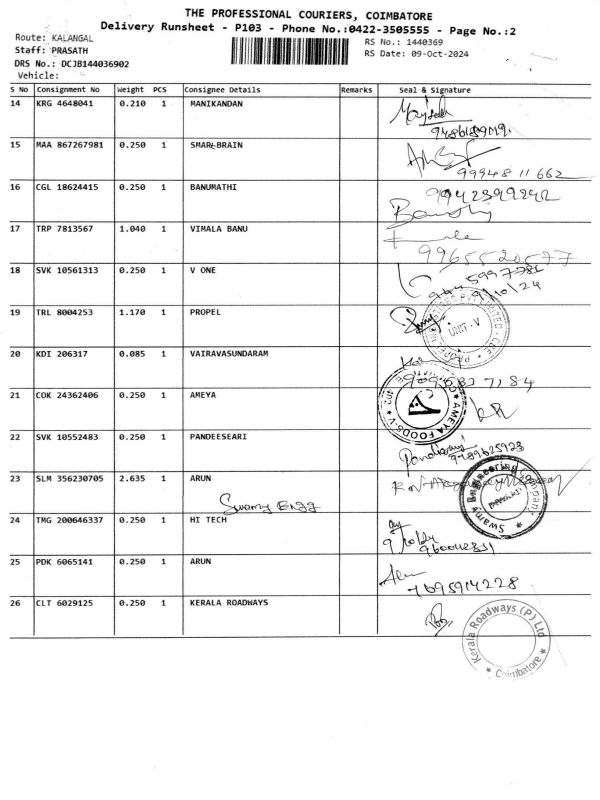 THE PROFESSIONAL COURIERS, COIMBATORE
Delivery Runsheet - P103 - Phone No.:0422-3505555 - Page No.:2
Route: KALANGAL
RS No.: 1440369
Staff: PRASATH
RS Date: 09-Oct-2024
DRS No.: DCJB144036902
Vehicle:
S No Consignment No Weight PCS Consignee Details Remarks Seal & Signature
14 KRG 4648041 0.210 1 MANIKANDAN
15 MAA 867267981 0.250 1 SMAR BRAIN
9994811662
16 CGL 18624415 0.250 1 BANUMATHI
9942399242
17 TRP 7813567 1.040 1 VIMALA BANU
9965520577
18 SVK 10561313 0.250 1 V ONE
9/10/24
19 TRL 8004253 1.170 1 PROPEL
UNIT-V
20 KDI 206317 0.085 1 VAIRAVASUNDARAM
21 COK 24362406 0.250 1 AMEYA
AMEYA FOODS-V
22 SVK 10552483 0.250 1 PANDEESEARI
9489625923
23 SLM 356230705 2.635 1 ARUN
Swamy Engg
Swamy Engineering Company
24 TMG 200646337 0.250 1 HI TECH
25 PDK 6065141 0.250 1 ARUN
7695914228
26 CLT 6029125 0.250 1 KERALA ROADWAYS
Kerala Roadways (P) Ltd
Coimbatore